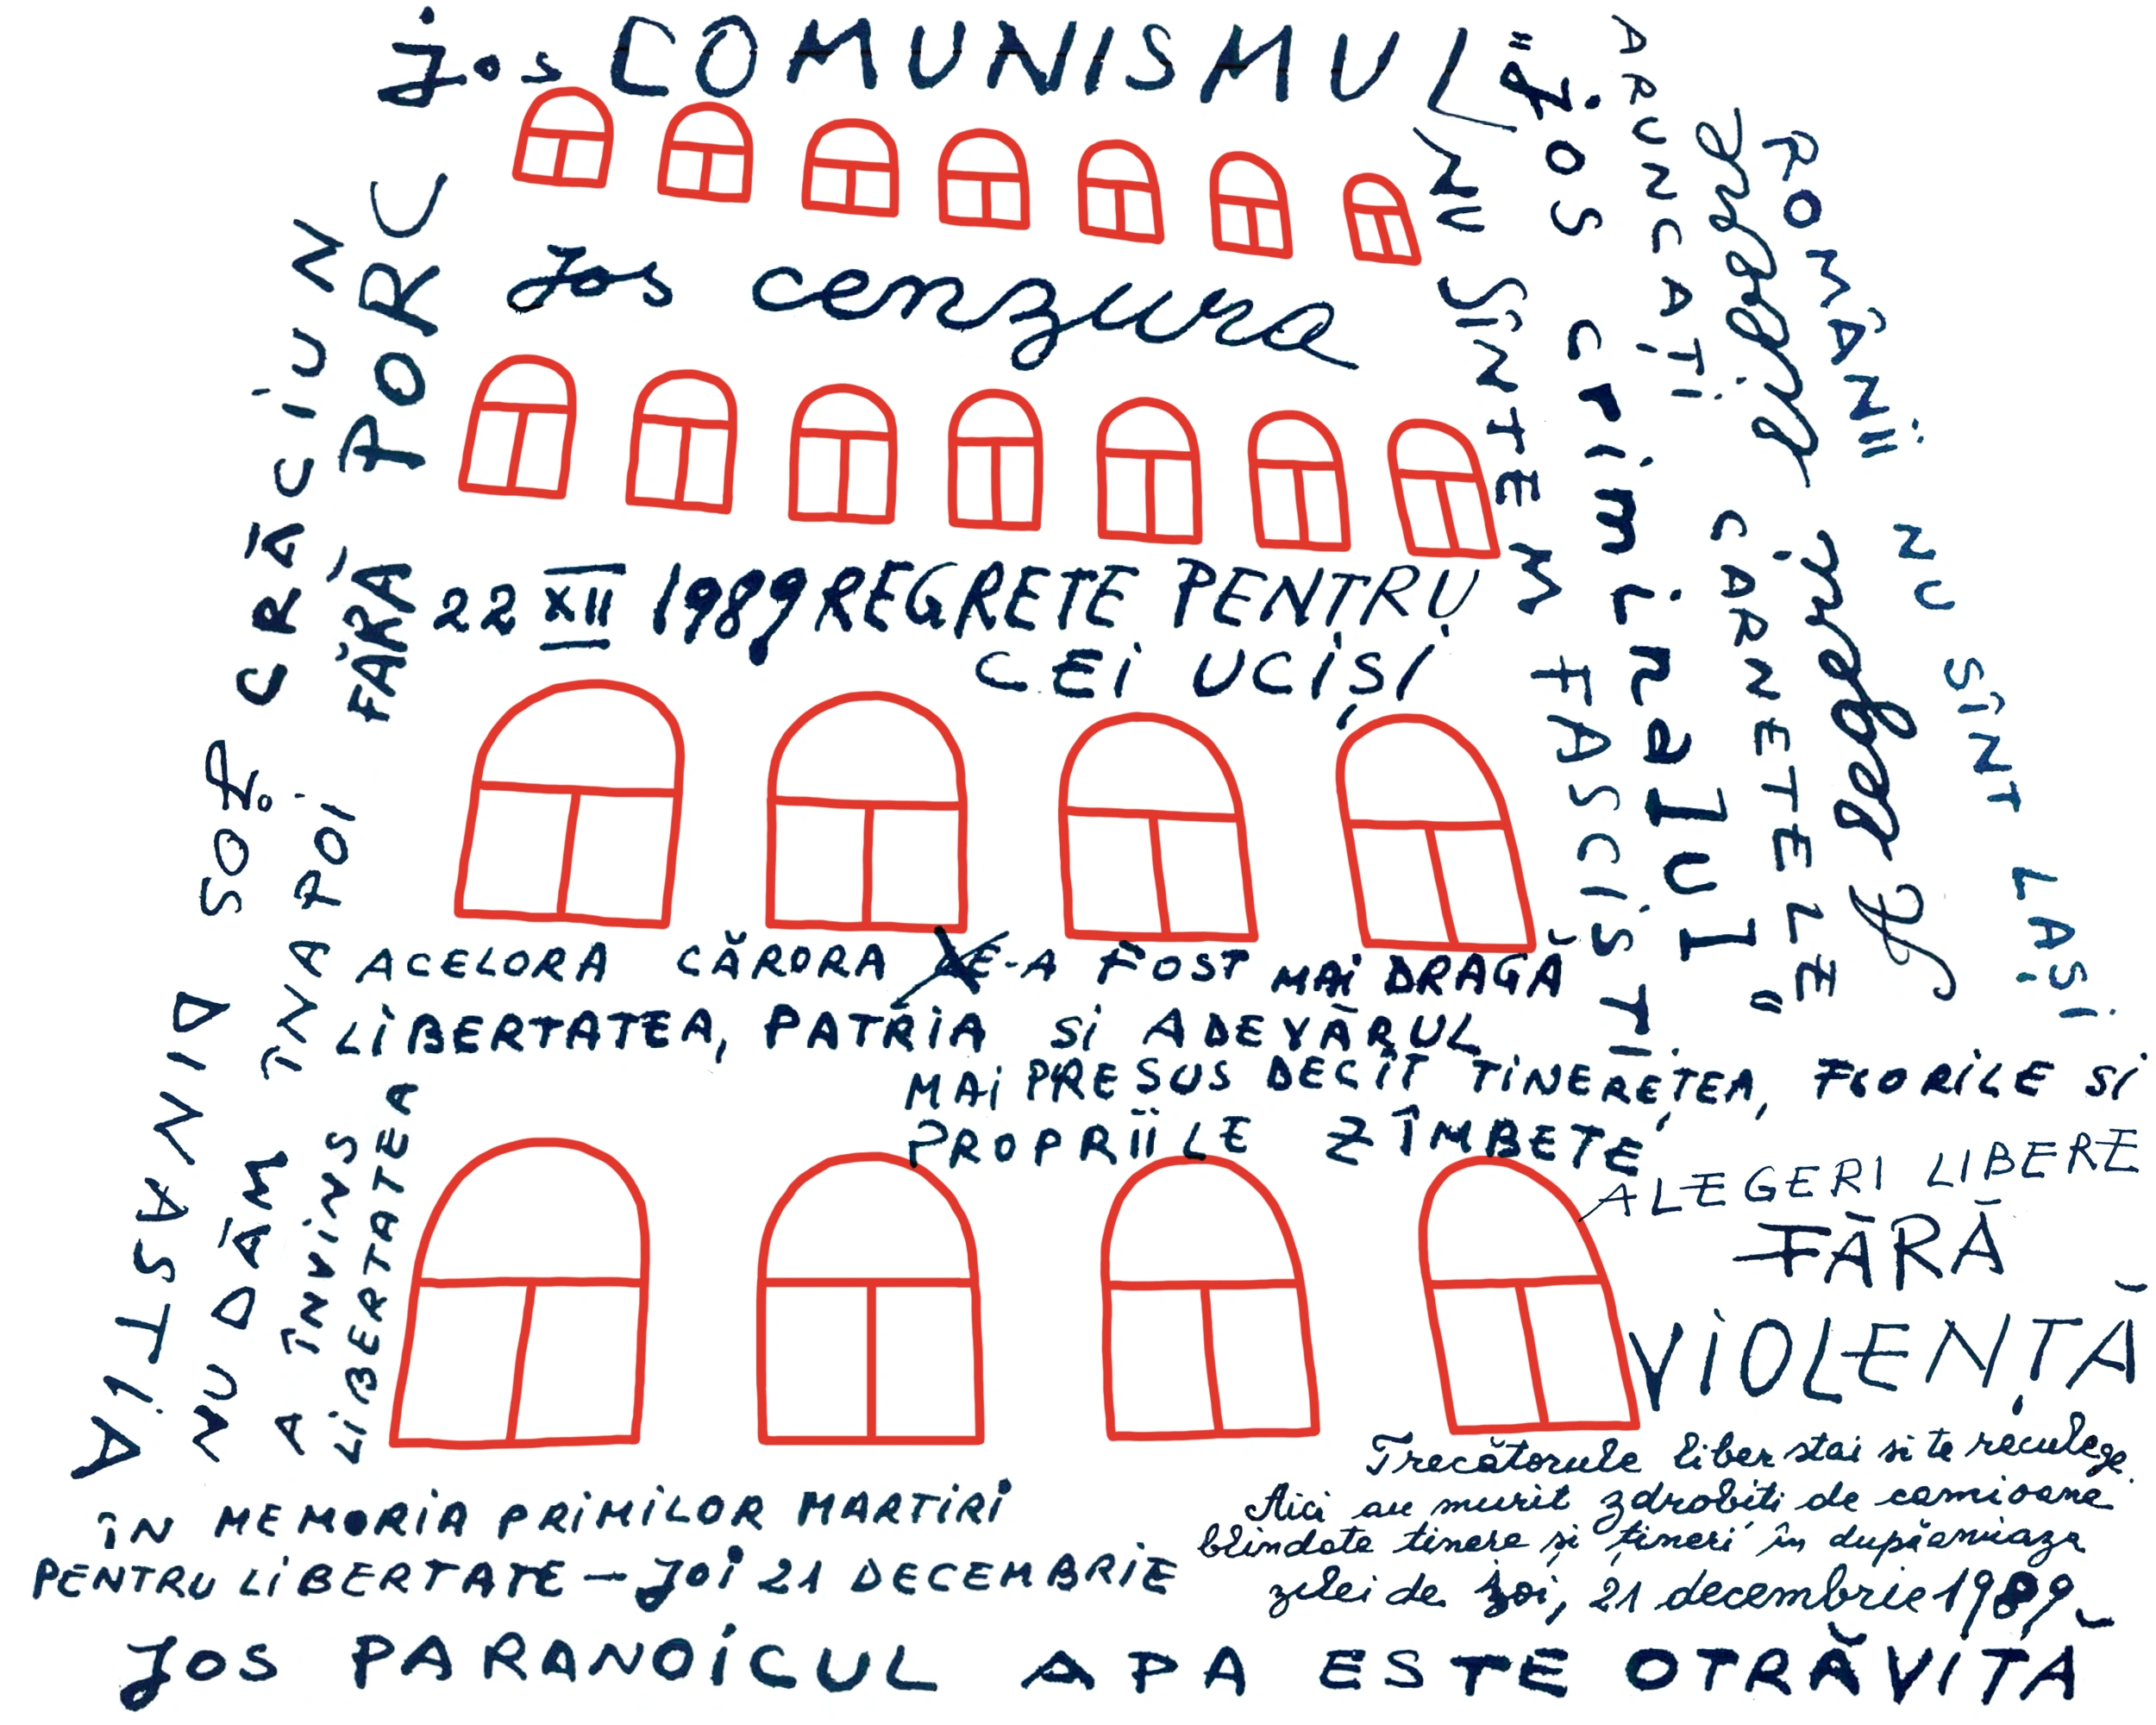 jos COMUNISMUL
jos cenzura
22 XII 1989 REGRETE PENTRU
CEI UCIȘI
ACELORA CĂRORA LE-A FOST MAI DRAGĂ
LIBERTATEA, PATRIA SI ADEVĂRUL
MAI PRESUS DECÎT TINEREȚEA, FLORILE SI
PROPRIILE ZÎMBETE
ALEGERI LIBERE
FĂRĂ
VIOLENȚĂ
Trecătorule liber stai si te reculege
Aici au murit zdrobiti de camioane
blindate tinere și tineri în dupăamiaza
zilei de Joi, 21 decembrie 1989
ÎN MEMORIA PRIMILOR MARTIRI
PENTRU LIBERTATE – JOI 21 DECEMBRIE
JOS PARANOICUL APA ESTE OTRĂVITĂ
JOS DINASTIA
CRĂCIUN
FĂRĂ PORC
NU DĂM ÎNAPOI
A ÎNVINS
LIBERTATEA
NU SINTEM FASCIȘTI
"jos criminalul"
ARUNCATI CARNETELE
ROMÂNII NU SÎNT LAȘI